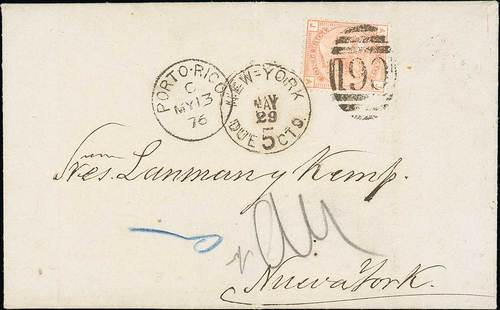 PORTO-RICO
C
MY 13
76
NEW-YORK
MAY
29
DUE 5 CTS.
Sres. Lanman y Kemp.
Nueva York.